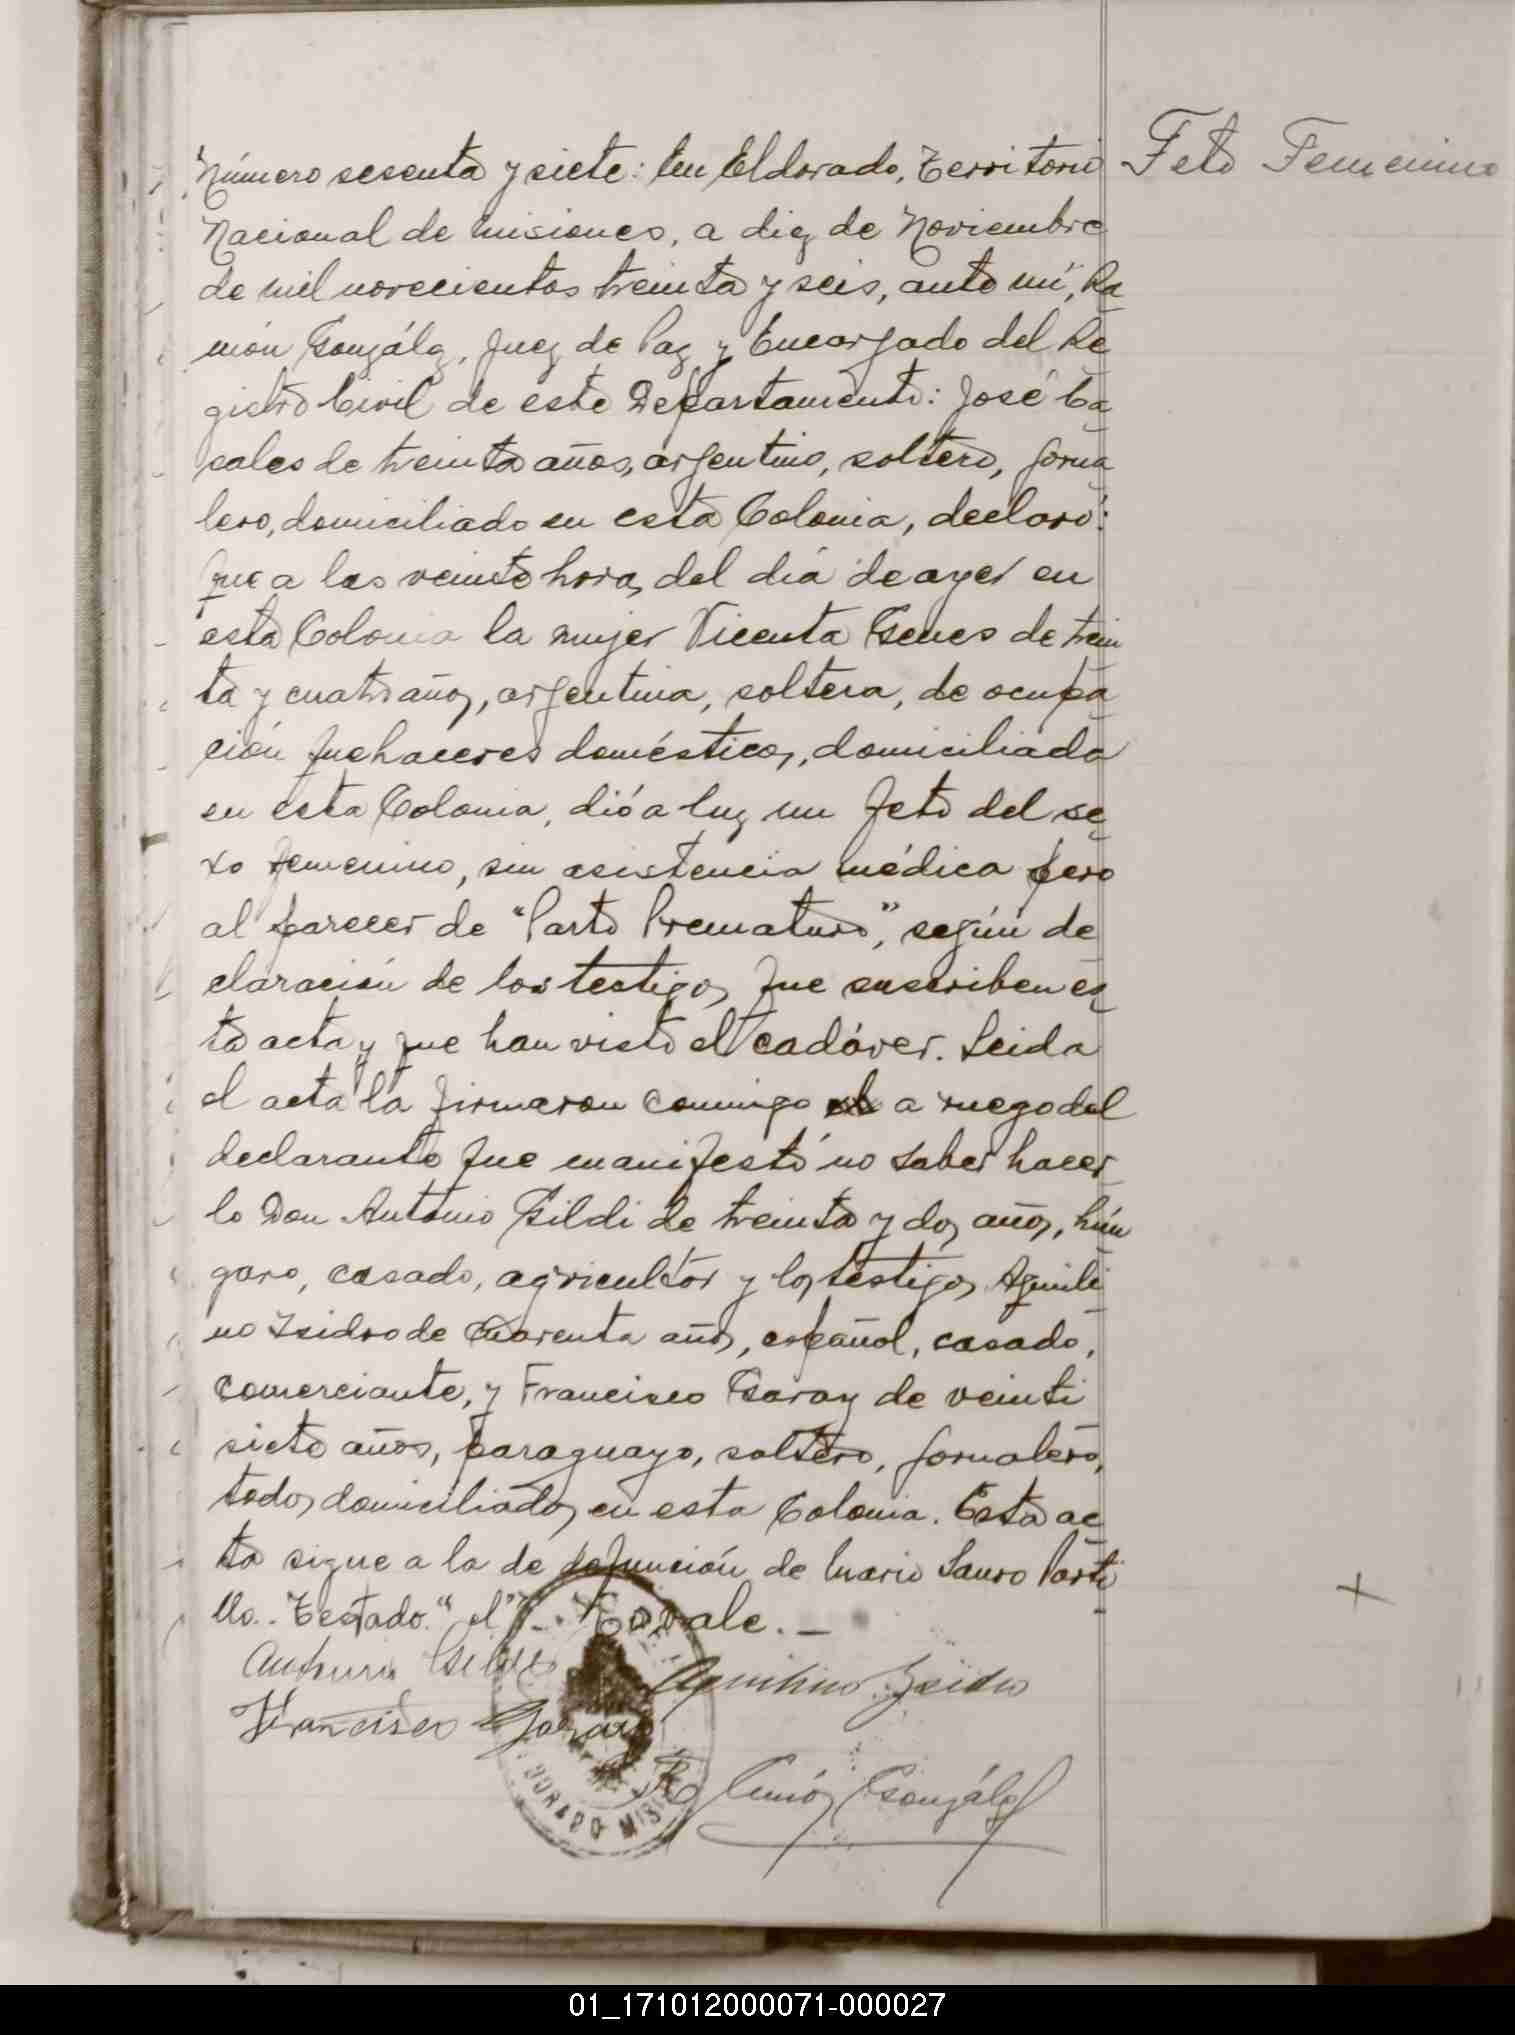 Feto Femenino
Número sesenta y siete: En Eldorado, Territorio
Nacional de Misiones, a diez de Noviembre
de mil novecientos treinta y seis, ante mí, Ra
món González, Juez de Paz y Encargado del Re
gistro Civil de este Departamento: José Ca
sales de treinta años, argentino, soltero, jorna
lero, domiciliado en esta Colonia, declaró:
que a las veinte horas del día de ayer en
esta Colonia la mujer Vicenta Genes de trein
ta y cuatro años, argentina, soltera, de ocupa
ción quehaceres domésticos, domiciliada
en esta Colonia, dió a luz un feto del se
xo femenino, sin asistencia médica pero
al parecer de "Parto Prematuro", según de
claración de los testigos que suscriben es
ta acta y que han visto el cadáver. Leida
el acta la firmaron conmigo el a ruego del
declarante que manifestó no saber hacer
lo Don Antonio Gildi de treinta y dos años, hún
garo, casado, agricultor y los testigos Aquili
no Isidro de cuarenta años, español, casado,
comerciante, y Francisco Garay de veinti
siete años, paraguayo, soltero, jornalero,
todos domiciliados en esta Colonia. Esta ac
ta sigue a la de defunción de Mario Lauro Porti
llo.- Testado: "el" - No vale. -
Aquilino Isidro
Francisco Garay
Ramón González
DORADO MISI
01_171012000071-000027